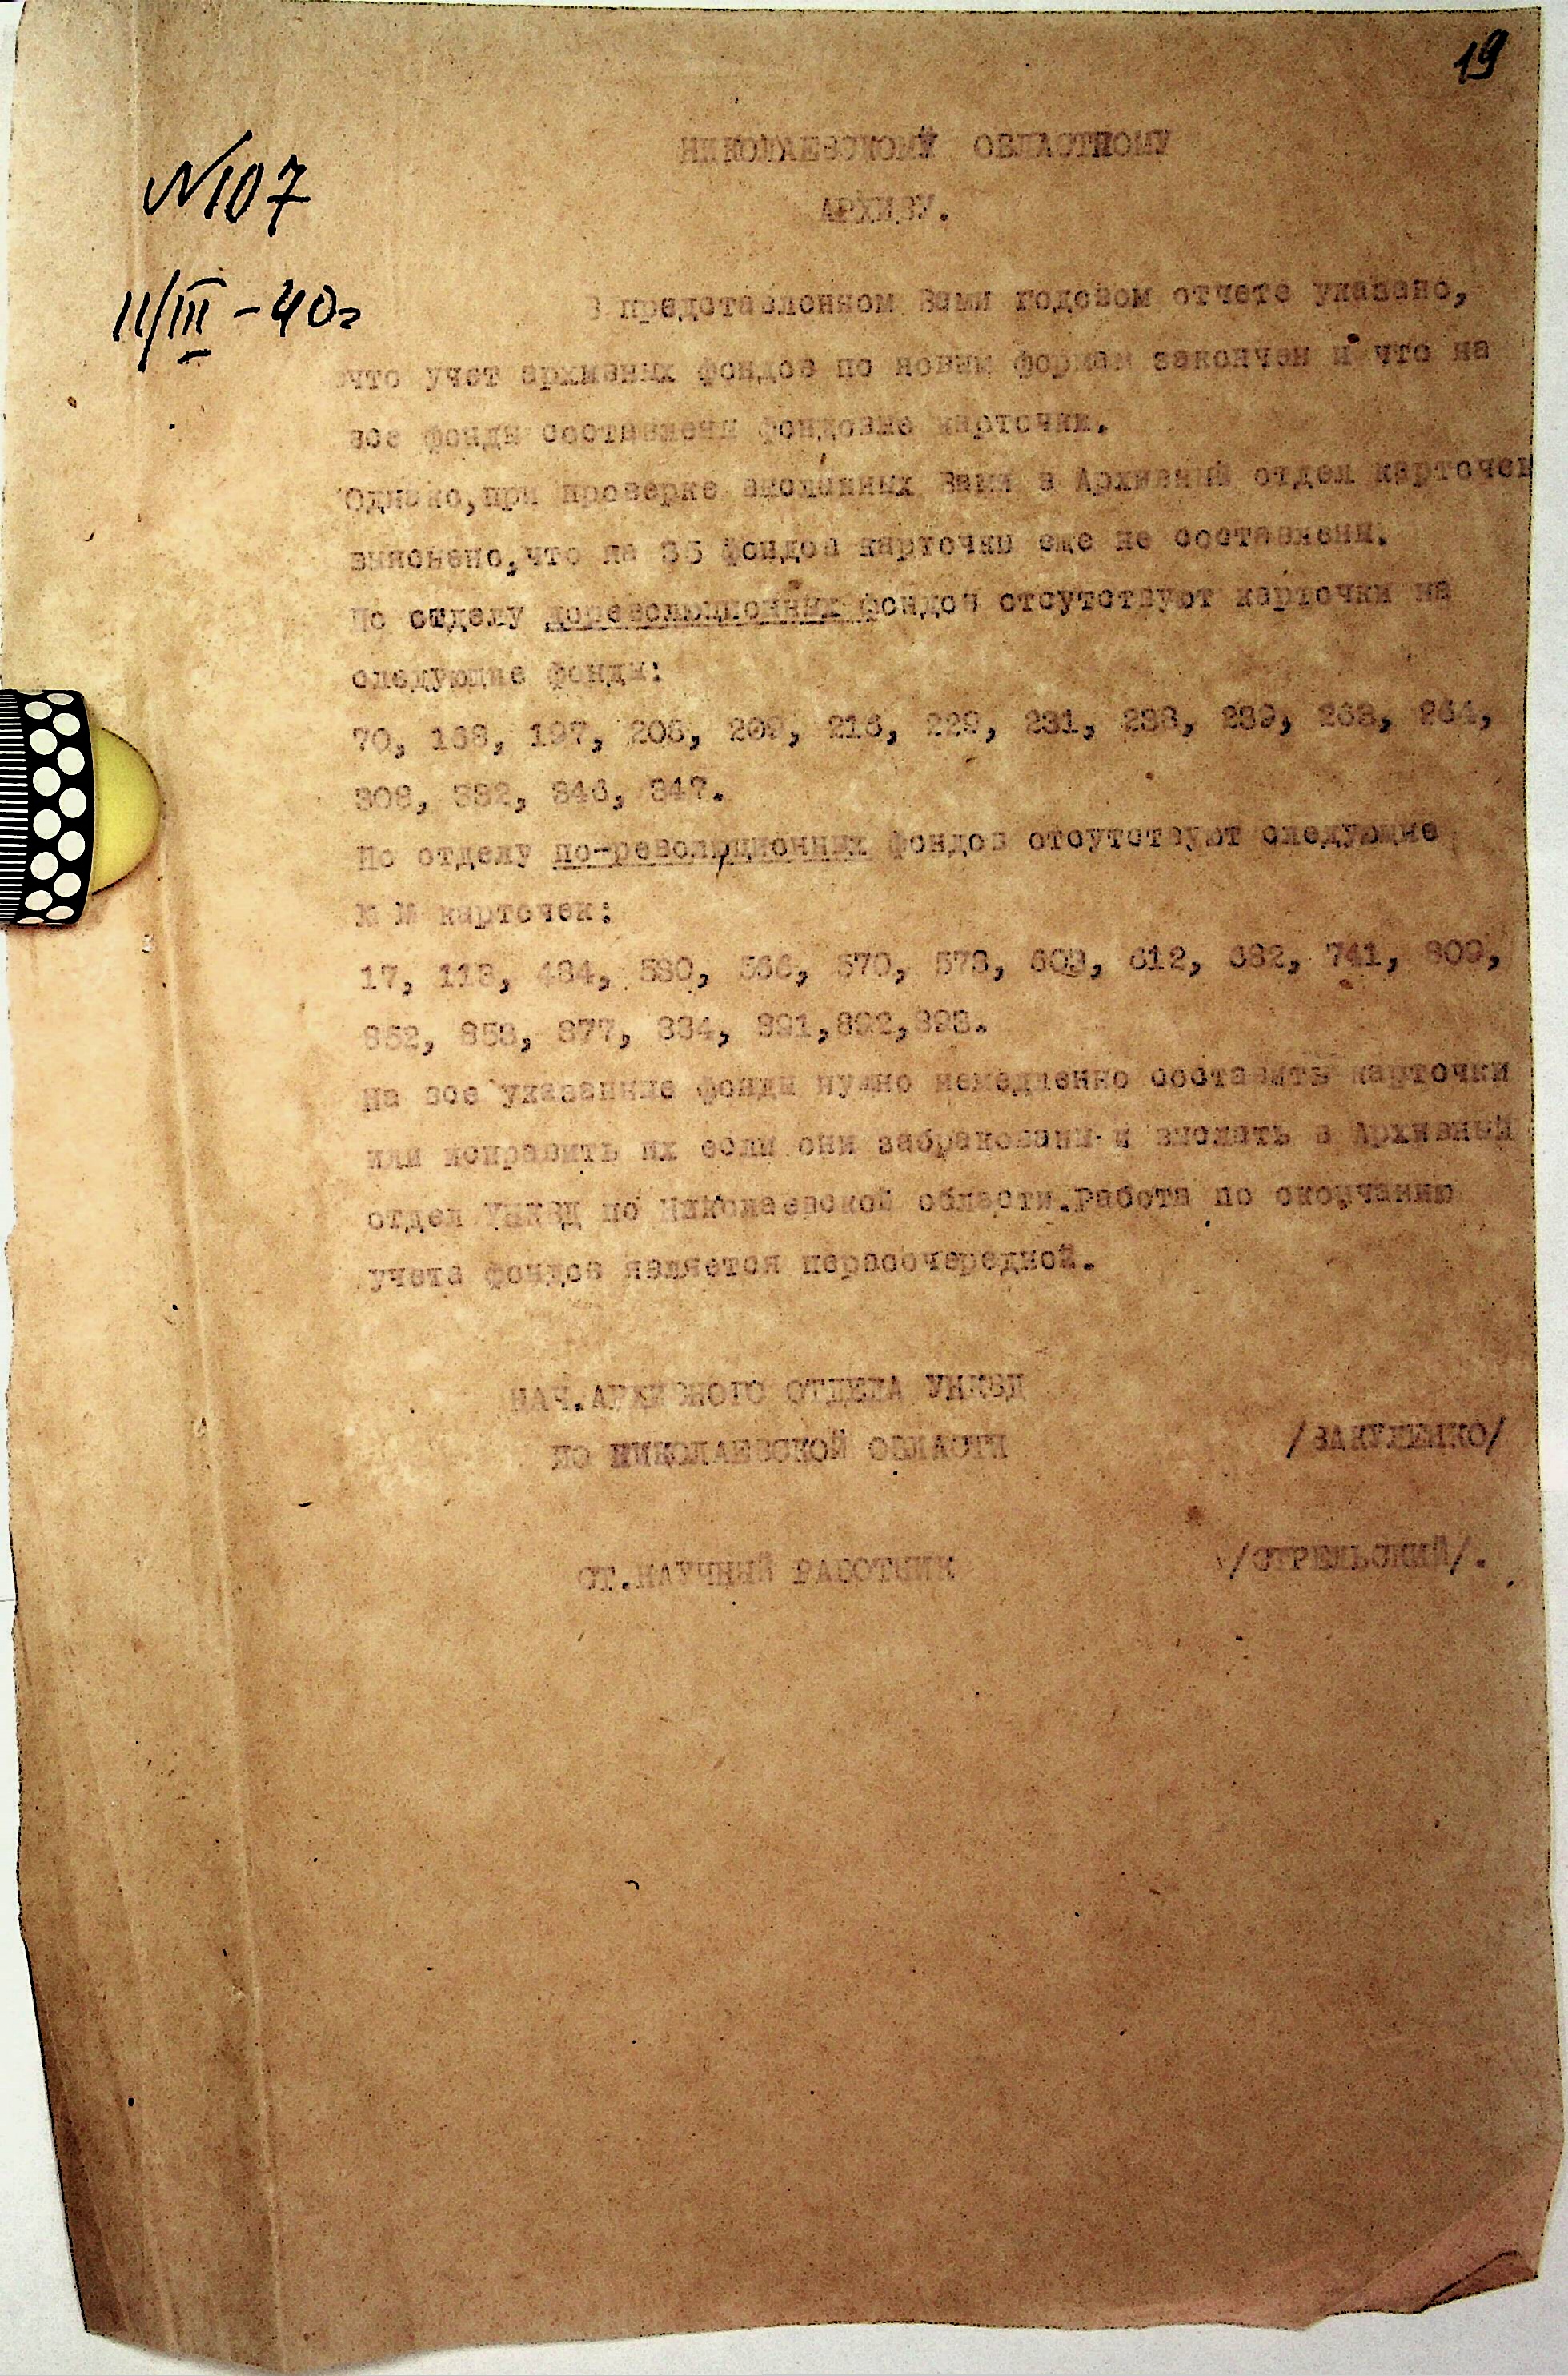 19
№107
11/III-40г
НИКОЛАЕВСКОМУ ОБЛАСТНОМУ
АРХИВУ.
В представленном Вами годовом отчете указано,
что учет архивных фондов по новым формам закончен и что на
все фонды составлены фондовые карточки.
Однако,при проверке высланных Вами в Архивный отдел карточек
выяснено,что на 35 фондов карточки еще не составлены.
По отделу дореволюционных фондов отсутствуют карточки на
следующие фонды:
70, 168, 197, 206, 209, 216, 229, 231, 238, 239, 263, 264,
308, 332, 346, 347.
По отделу по-революционных фондов отсутствуют следующие
№ № карточек:
17, 113, 484, 530, 566, 570, 573, 603, 612, 632, 741, 809,
852, 853, 877, 884, 891,892,893.
На все указанные фонды нужно немедленно составить карточки
или исправить их если они забракованы и выслать в Архивный
отдел УНКВД по Николаевской области.Работа по окончанию
учета фондов является первоочередной.
НАЧ.АРХИВНОГО ОТДЕЛА УНКВД
ПО НИКОЛАЕВСКОЙ ОБЛАСТИ
СТ.НАУЧНЫЙ РАБОТНИК
/СТРЕЛЬСКИЙ/.